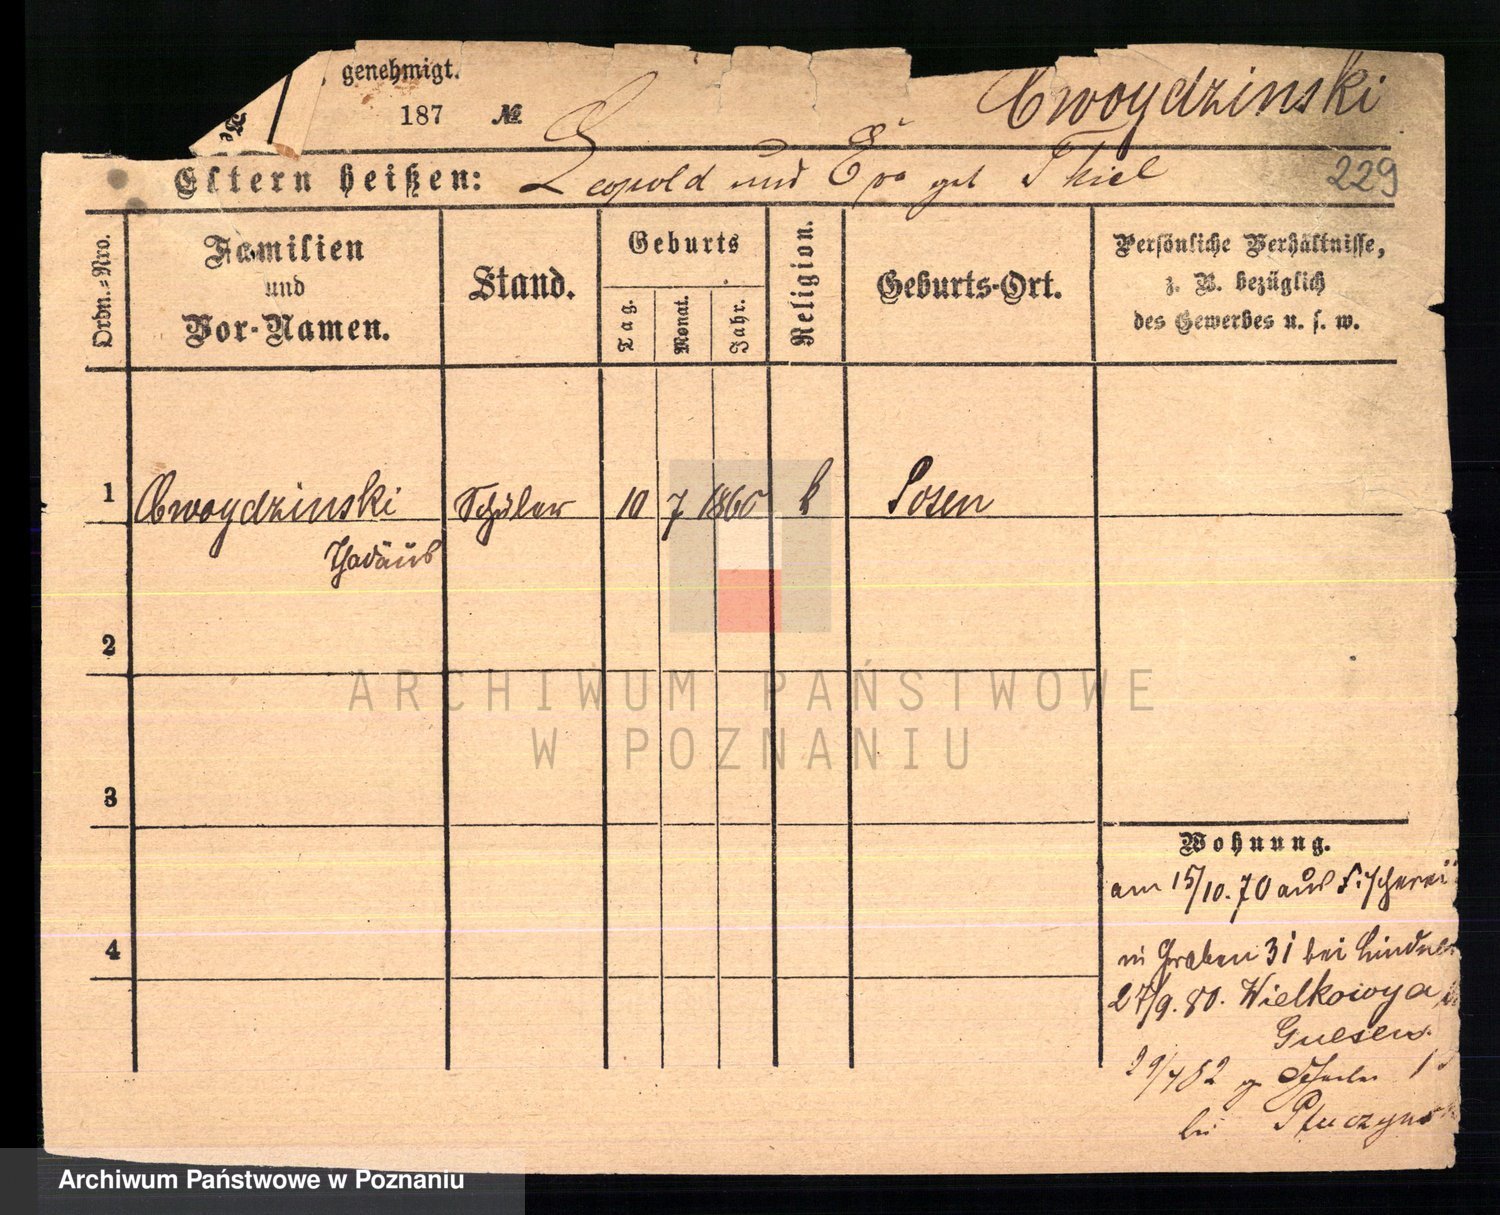 genehmigt.
187 №
Cwoydzinski
Eltern heißen: Leopold und Eva geb Thiel
229
Ordn.=Nro.
Familien
und
Vor-Namen.
Stand.
Geburts
Tag.
Monat.
Jahr.
Religion.
Geburts-Ort.
Persönliche Verhältnisse,
z. B. bezüglich
des Gewerbes u. s. w.
1 Cwoydzinski Schüler 10 7 1860 k Posen
Thadäus
2
3
4
Wohnung.
am 15/10.70 aus Fischerei
in Graben 31 bei Lindner
27/9.80. Wielkowya
Gnesen
29/7 82
bei
ARCHIWUM PAŃSTWOWE
W POZNANIU
Archiwum Państwowe w Poznaniu